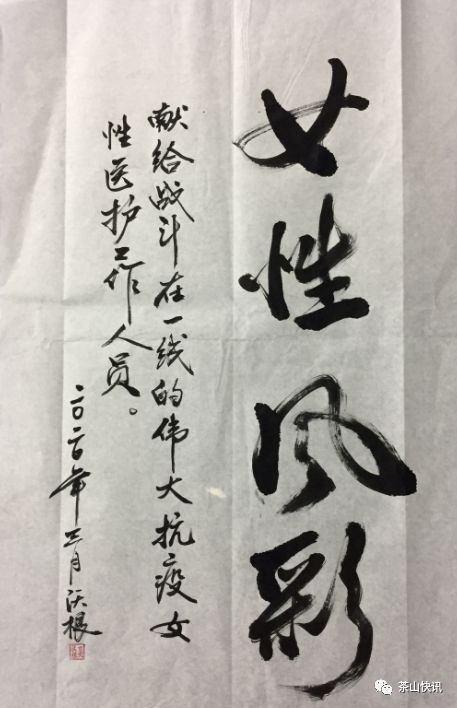 女性风彩
献给战斗在一线的伟大抗疫女
性医护工作人员。
二〇二〇年三月沃根
茶山快讯